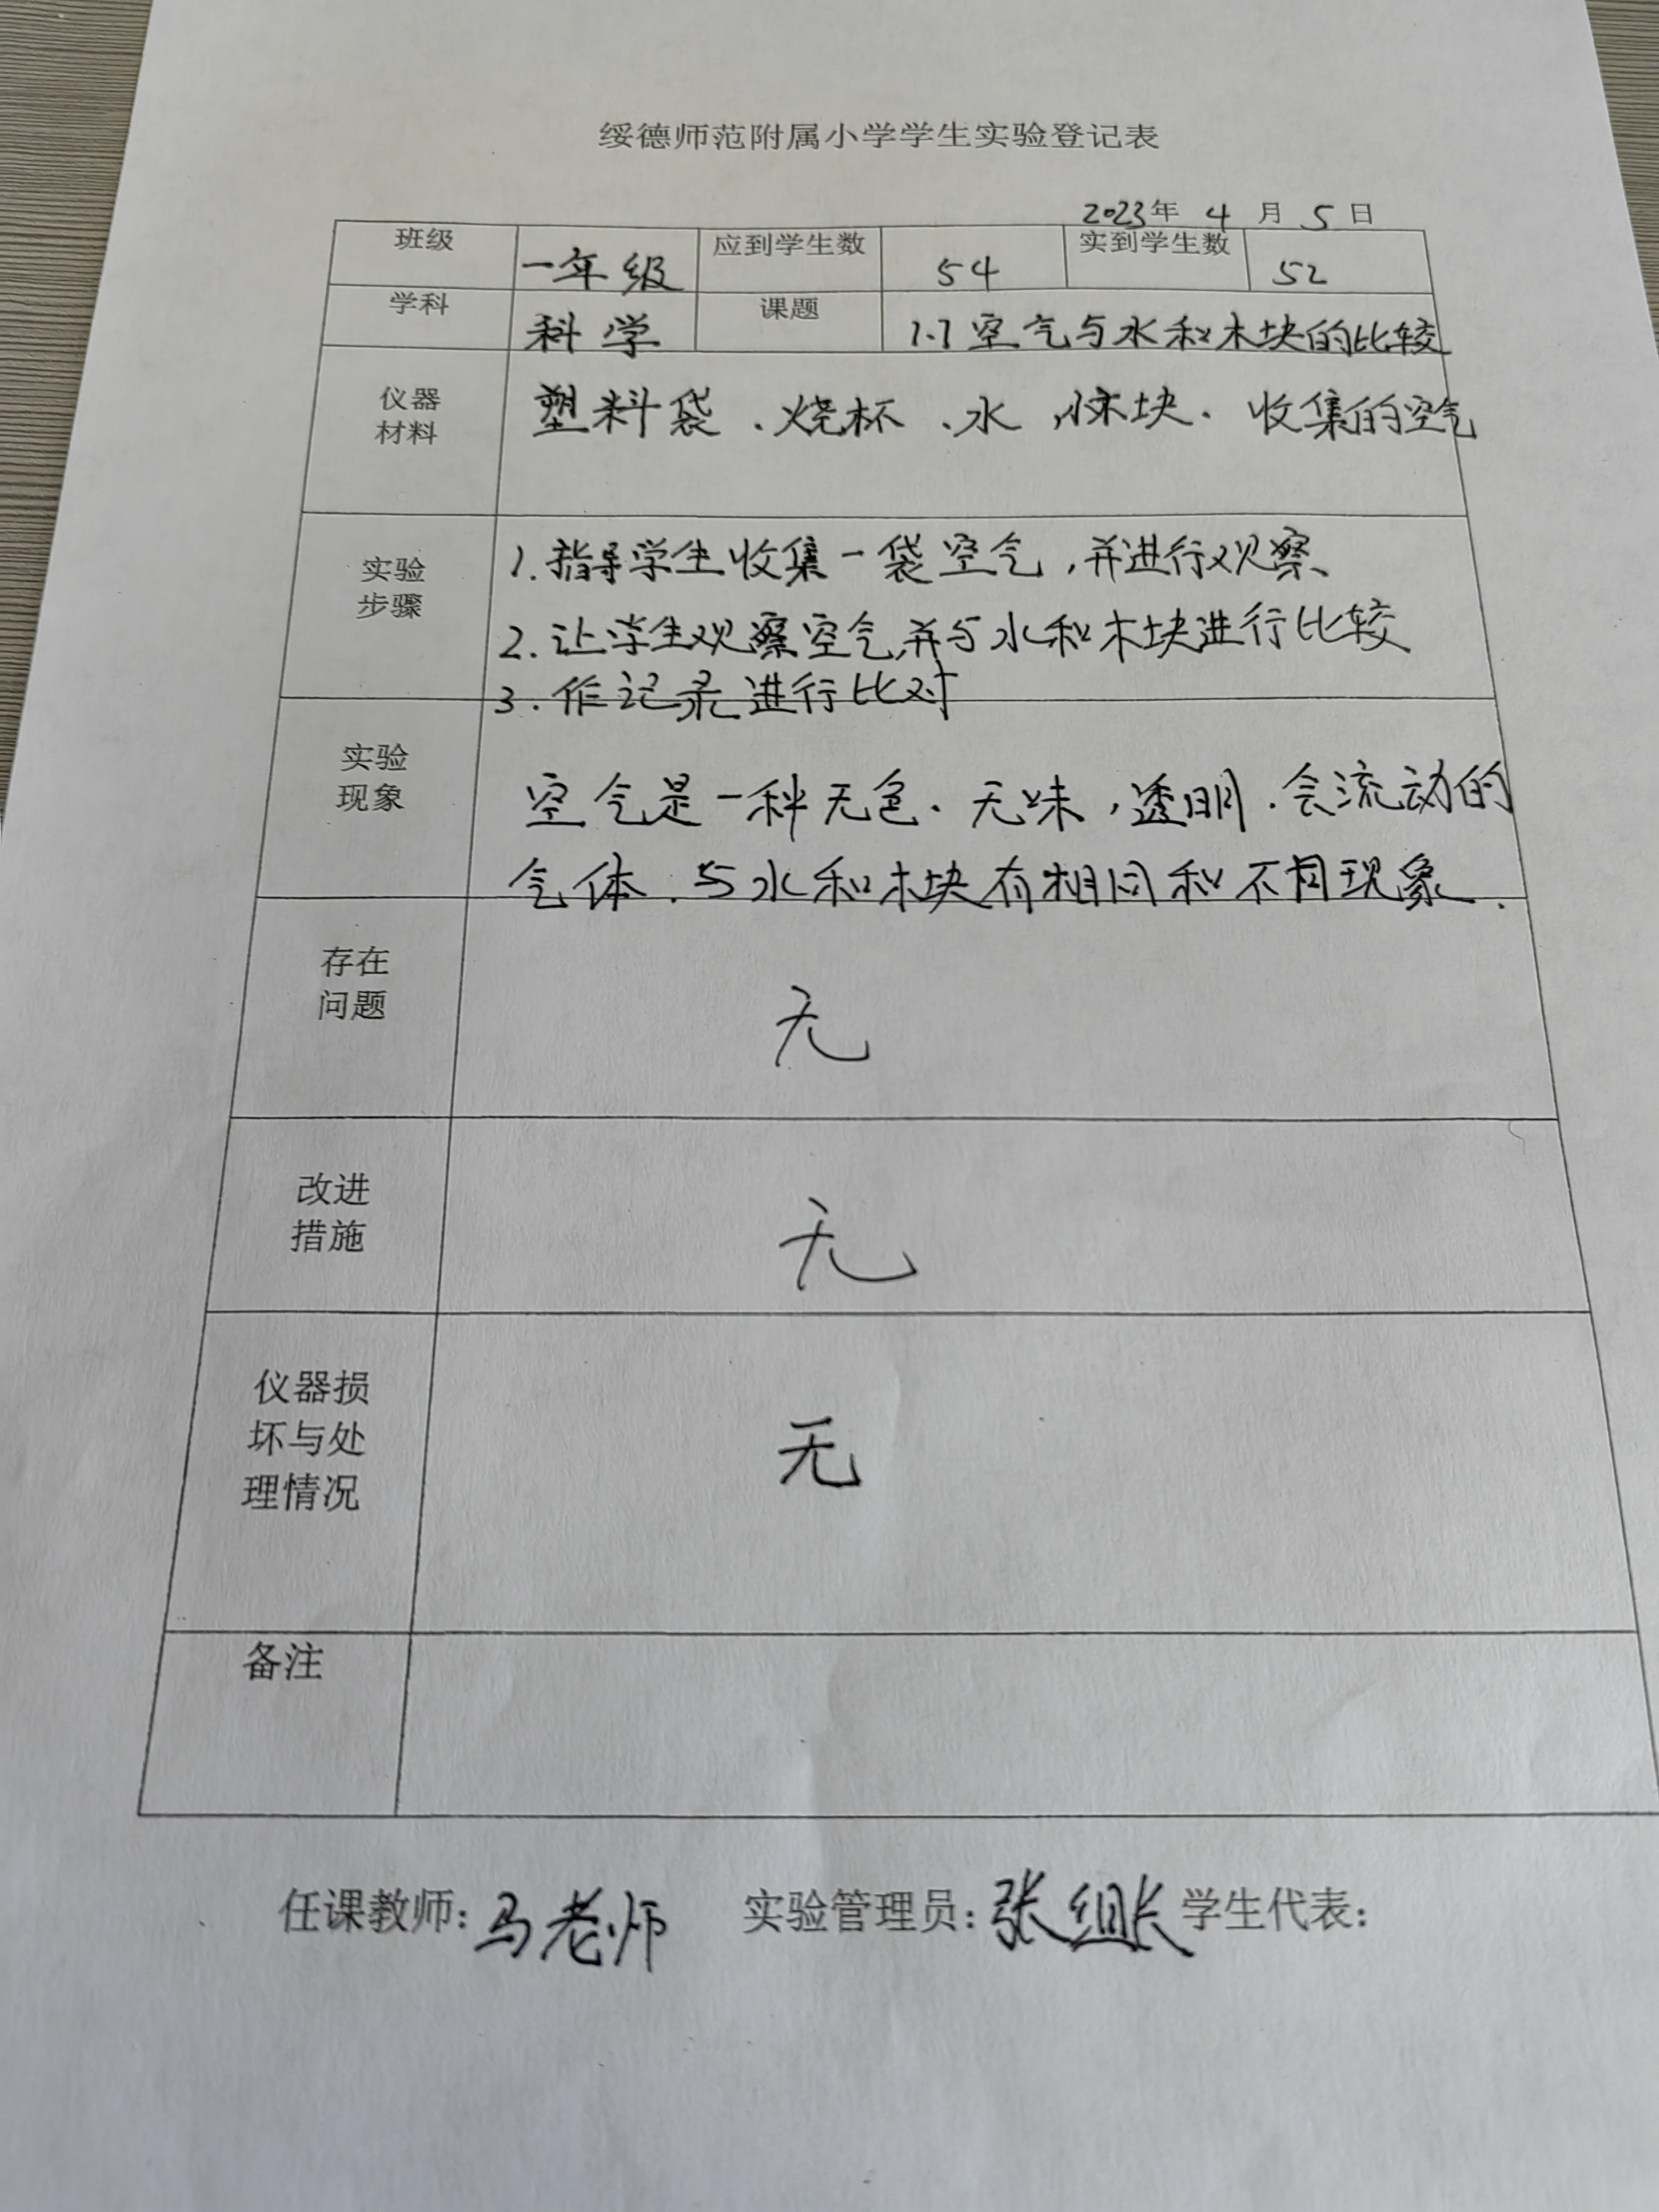 绥德师范附属小学学生实验登记表
2023年 4 月 5 日
班级 一年级 应到学生数 54 实到学生数 52
学科 科学 课题 1.7 空气与水和木块的比较
仪器 塑料袋、烧杯、水、木块、收集的空气
材料
1.指导学生收集一袋空气,并进行观察、
实验
步骤
2.让学生观察空气,并与水和木块进行比较
3.作记录进行比对
实验
现象
空气是一种无色、无味,透明、会流动的
气体.与水和木块有相同和不同现象.
存在
问题
无
改进
措施
无
仪器损
坏与处
理情况
无
备注
任课教师:马老师 实验管理员:张组长 学生代表: